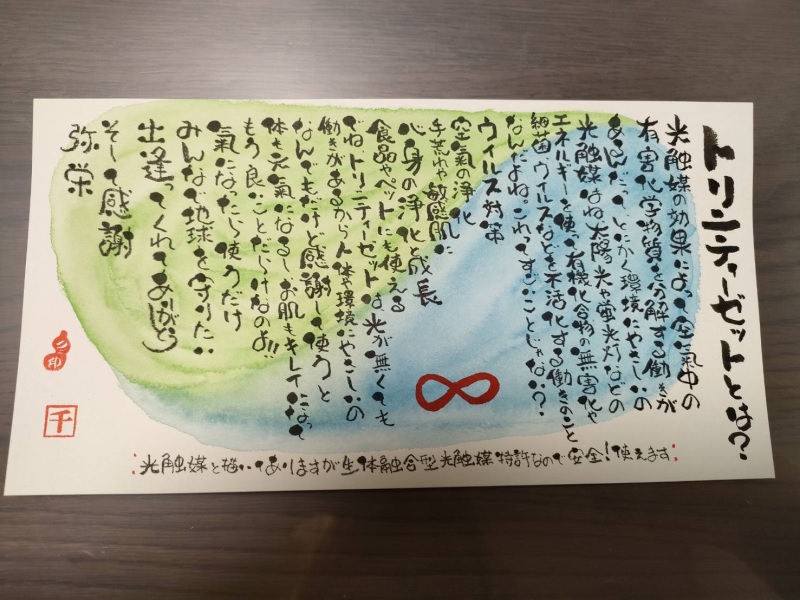 トリニティーゼットとは?
光触媒の効果によって空氣中の
有害化学物質を分解する働きが
あるんだって、とにかく環境にやさしいの
光触媒はね太陽光や蛍光灯などの
エネルギーを使い有機化合物の無害化や
細菌ウイルスなどを不活化する働きのこと
なんだよね。これってすごいことじゃない?
ウィルス対策
空氣の浄化
手荒れや敏感肌に
心身の浄化と成長
食品やペットにも使える
でねトリニティーゼットは、光が無くても
働きがあるから人体や環境にやさしいの
なんでもだけど感謝して使うと
体も元氣になるしお肌もキレイになって
もう良いことだらけなのよ!!
氣になったら使うだけ
みんなで地球を守りたい
出逢ってくれてありがとう
そして感謝
弥栄
千
光触媒と描いてありますが生体融合型光触媒特許なので安全!使えます